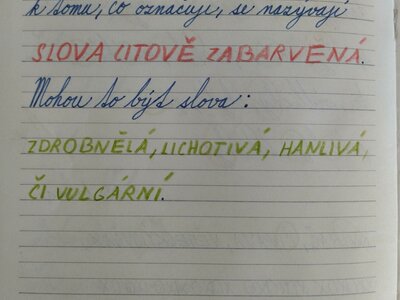 k tomu, co označuje, se nazývají
SLOVA CITOVĚ ZABARVENÁ.
Mohou to být slova:
ZDROBNĚLÁ, LICHOTIVÁ, HANLIVÁ,
ČI VULGÁRNÍ.